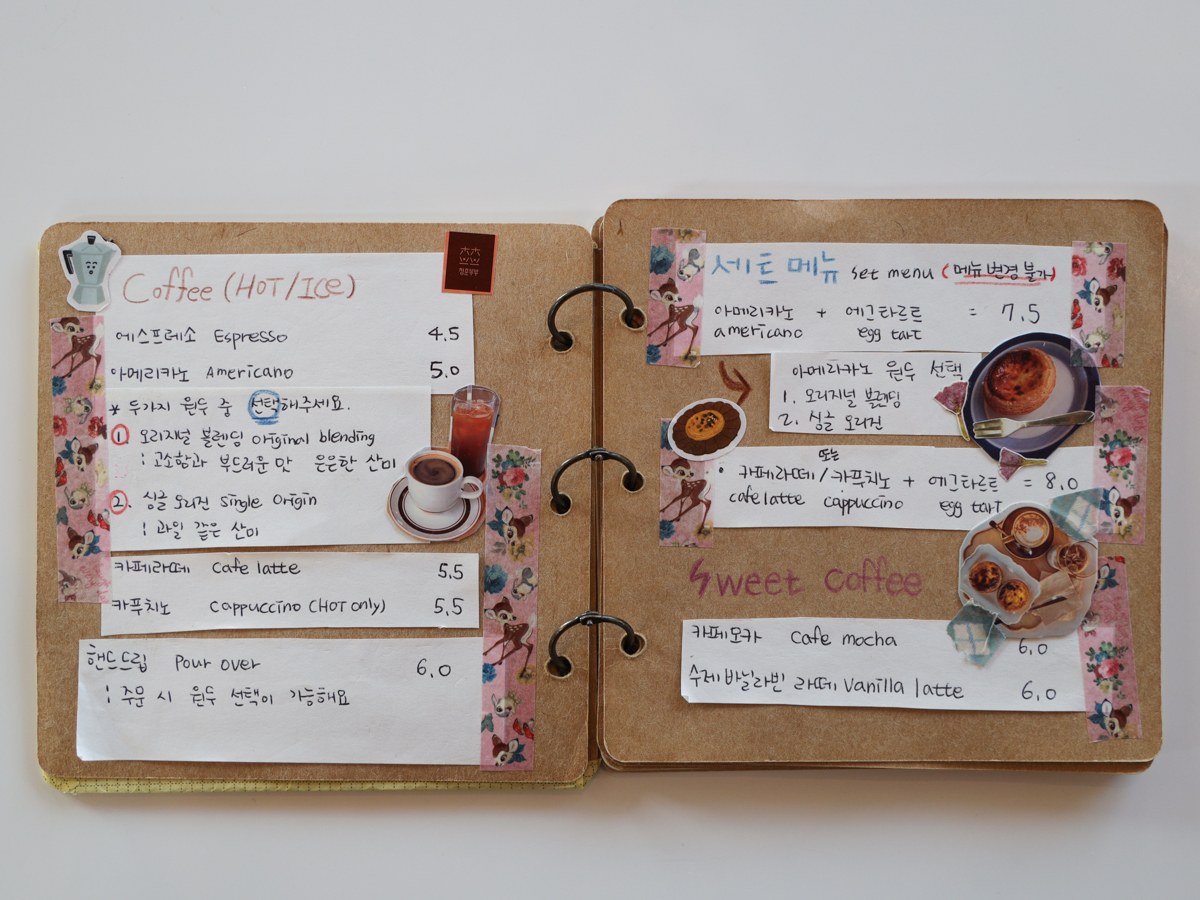 Coffee (HOT/ICE)
에스프레소 Espresso 4.5
아메리카노 Americano 5.0
* 두가지 원두 중 선택해주세요.
1 오리지널 블렌딩 original blending
: 고소함과 부드러운 맛 은은한 산미
2. 싱글 오리진 Single Origin
: 과일 같은 산미
카페라떼 Cafe latte 5.5
카푸치노 Cappuccino (HOT only) 5.5
핸드드립 Pour over 6.0
: 주문 시 원두 선택이 가능해요
세트 메뉴 set menu (메뉴 변경 불가)
아메리카노 + 에그타르트 = 7.5
americano egg tart
아메리카노 원두 선택
1. 오리지널 블렌딩
2. 싱글 오리진
또는
• 카페라떼/카푸치노 + 에그타르트 = 8.0
cafe latte cappuccino egg tart
Sweet coffee
카페모카 Cafe mocha 6.0
수제 바닐라빈 라떼 Vanilla latte 6.0